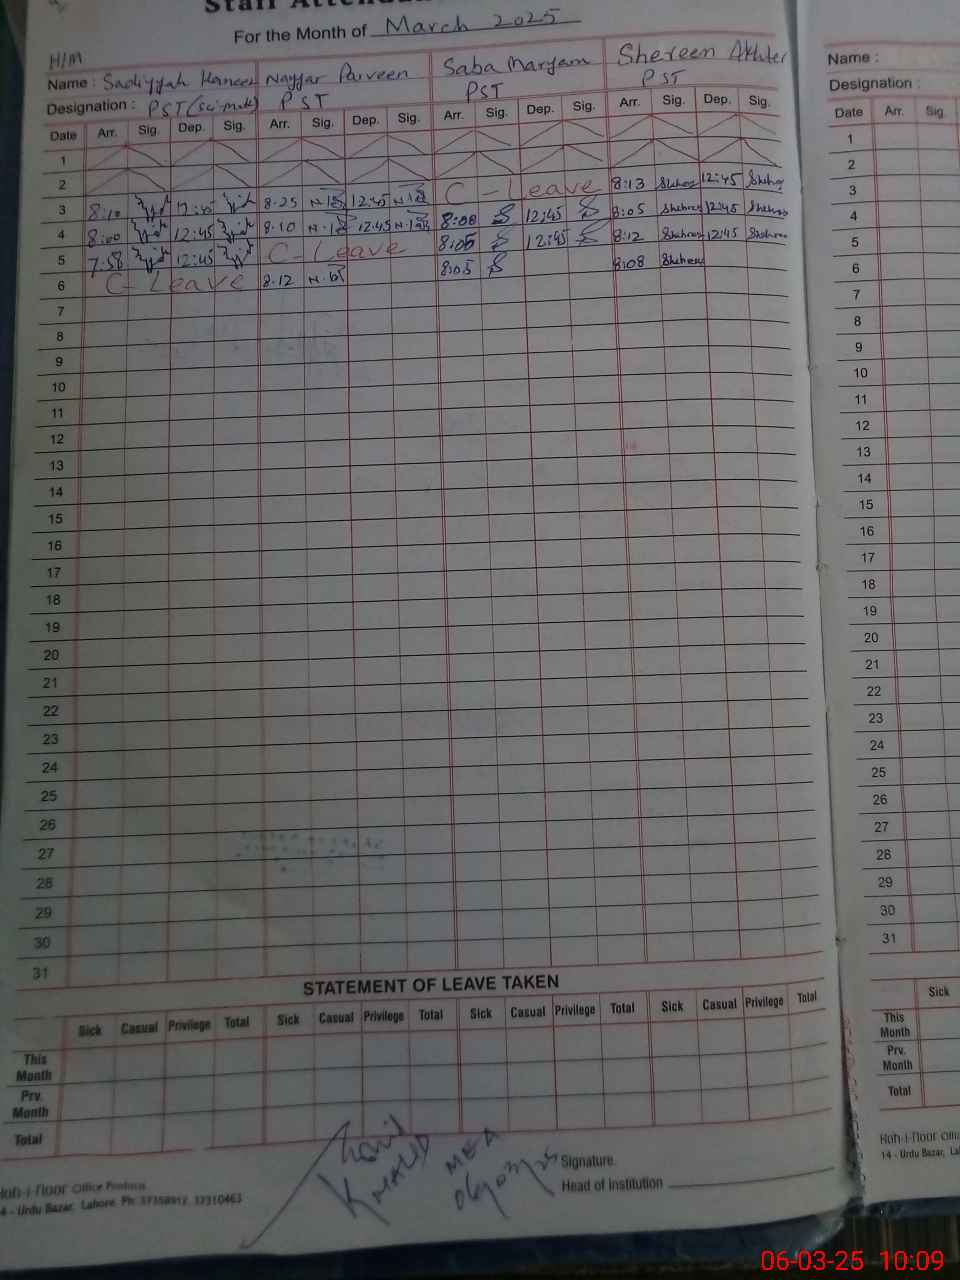 For the Month of March 2025
H/M
Name : Sadiyyah Nayyar Parveen Saba Maryam Shereen Akhter
Designation : PST PST PST PST
Date Arr. Sig. Dep. Sig. Arr. Sig. Dep. Sig. Arr. Sig. Dep. Sig. Arr. Sig. Dep. Sig.
1
2
3 8:10 12:45 8.25 12:45 C-Leave 8:13 12:45
4 8:00 12:45 8.10 12.45 8:00 12:45 8:05 12:45
5 7:58 12:45 C-Leave 8:05 12:45 8:12 12:45
6 C-Leave 8.12 8:05 8:08
7
8
9
10
11
12
13
14
15
16
17
18
19
20
21
22
23
24
25
26
27
28
29
30
31
STATEMENT OF LEAVE TAKEN
Sick Casual Privilege Total Sick Casual Privilege Total Sick Casual Privilege Total Sick Casual Privilege Total
This Month
Prv. Month
Total
KHALID
MEA
06/03/25
Signature.
Head of Institution
Office Products
Urdu Bazar, Lahore. Ph: 37358912 37310463
Name :
Designation :
Date Arr. Sig.
1
2
3
4
5
6
7
8
9
10
11
12
13
14
15
16
17
18
19
20
21
22
23
24
25
26
27
28
29
30
31
Sick
This Month
Prv. Month
Total
14 - Urdu Bazar,
06-03-25 10:09